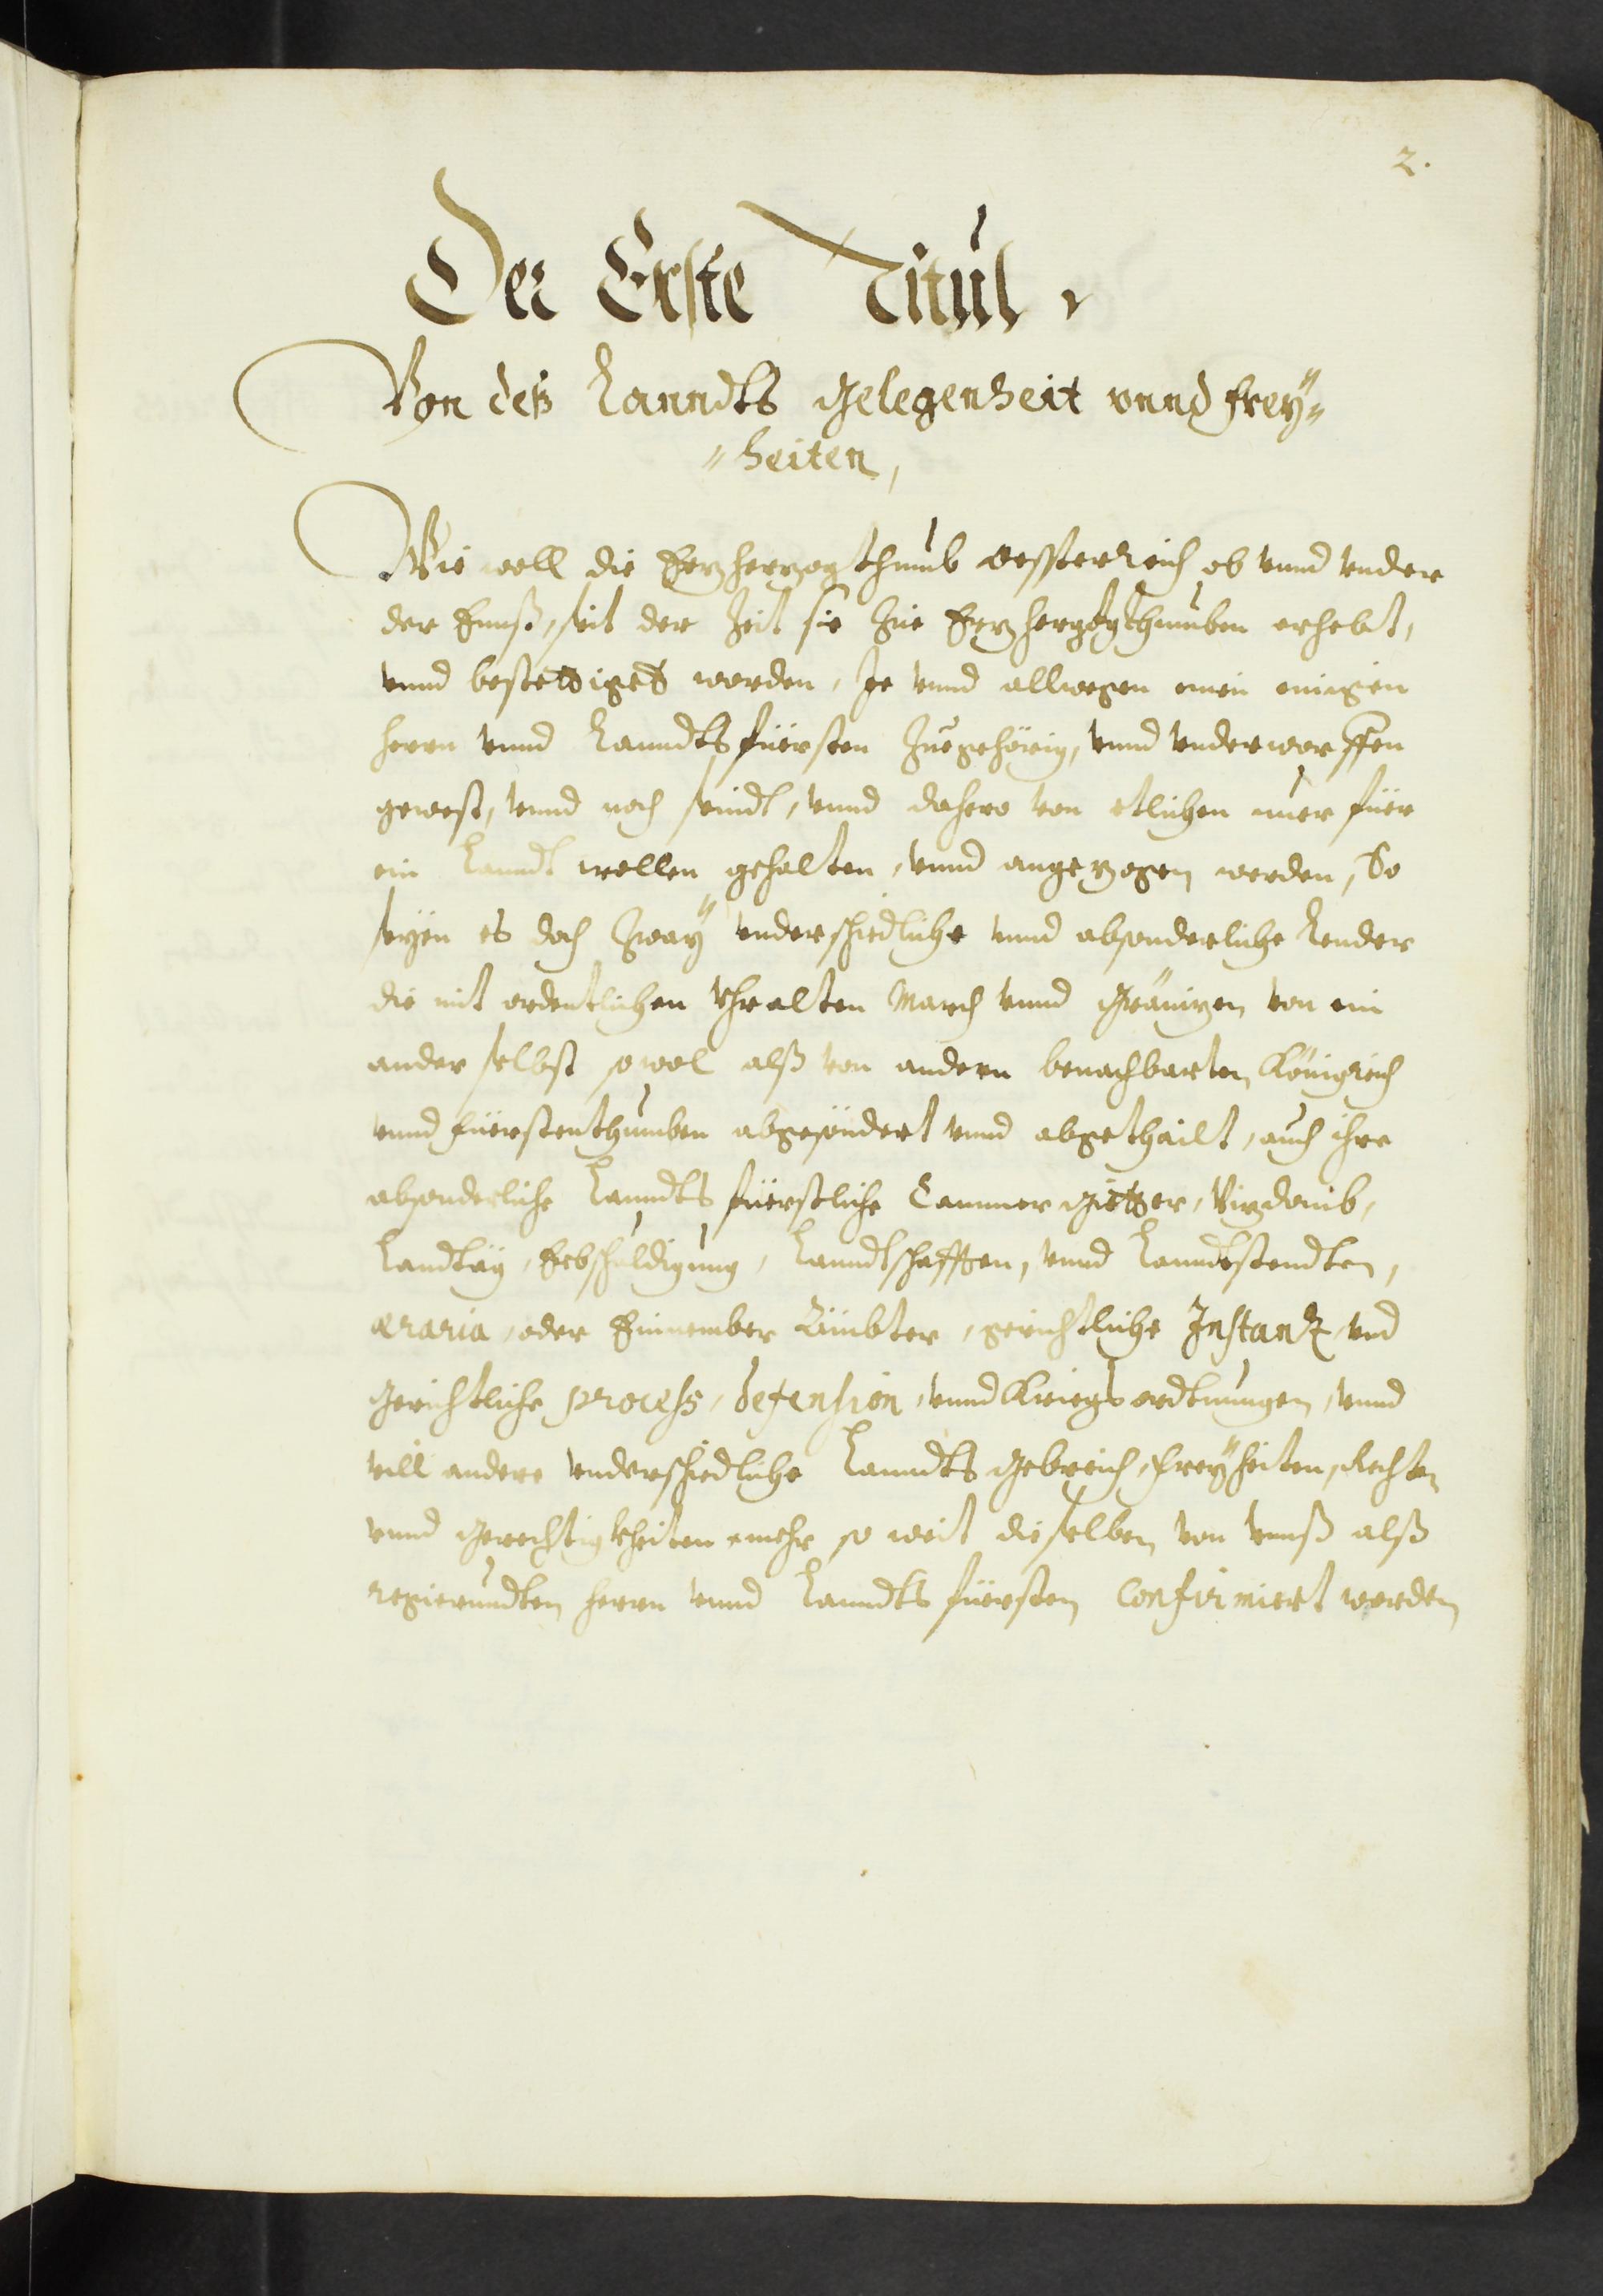 2.
Der Erste Titul,
Von deß Lanndts gelegenheit vnnd frey=
=heiten,
Wie woll die Erzherzogthumb Oessterreich ob vnnd vnder
der Ennß, seit der Zeit sie Zue Erzherzogthumben erhebt,
vnnd bestettiget worden, Je vnnd allwegen einen einigen
herrn vnnd Lanndts fürsten Zuegehörig, vnnd vnderworffen
gewest, vnnd noch seindt, vnnd dahero von etlichen nuer für
ein Lanndt wellen gehalten, vnnd angezogen werden, So
seyen es doch Zway vnderschiedliche vnnd absonderliche Lender
die mit ordentlichen Vhralten March vnnd Gränizen von ein
ander selbst sowol alß von andern benachbarten Königreich
vnnd fürstenthumben abgesöndert vnnd abgethailt, auch ihre
absonderliche Lanndts fürstliche Cammer güetter, Vizdomb,
Landtäg, Erbhuldigung, Lanndtschafften, vnnd Lanndtstendten,
æraria, oder Einnember Ämbter, gerichtliche Instantz, vnd
Gerichtliche process, defension, vnnd Kriegs ordtnungen, vnnd
vill andere vnderschiedliche Lanndts gebreich, freyheiten, Rechten
vnnd Gerechtigkheiten mehr so weit dieselben von vnnß alß
regierundten herrn vnnd Lanndts fürsten Confirmiert worden